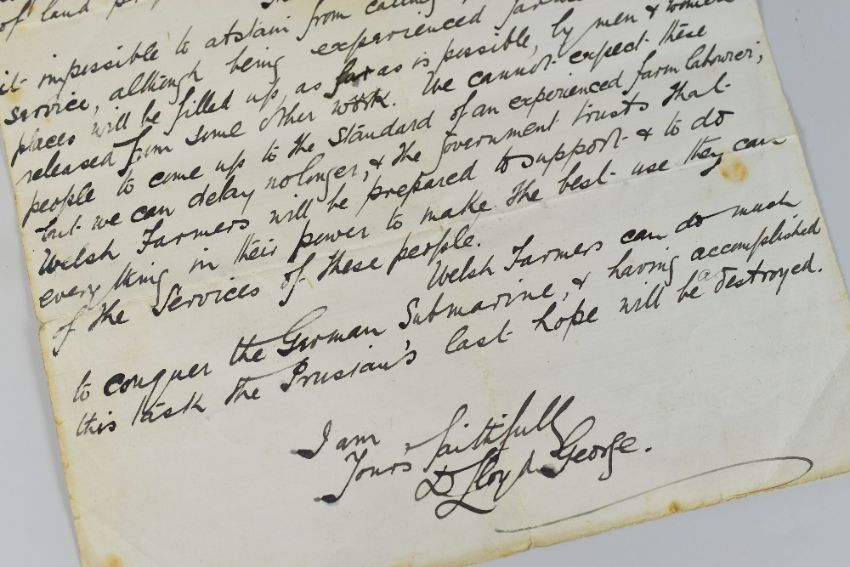 of land
it impossible to abstain from calling
service, although being experienced
places will be filled up, as far as is possible, by men & women
released from some other work. We cannot expect these
people to come up to the standard of an experienced farm labourer;
but we can delay no longer, & the Government trusts that
Welsh Farmers will be prepared to support & to do
every thing in their power to make the best use they can
of the services of these people.
Welsh Farmers can do much
to conquer the German Submarine, & having accomplished
this task the Prussian's last hope will be destroyed.
I am
Yours faithfully
D Lloyd George.